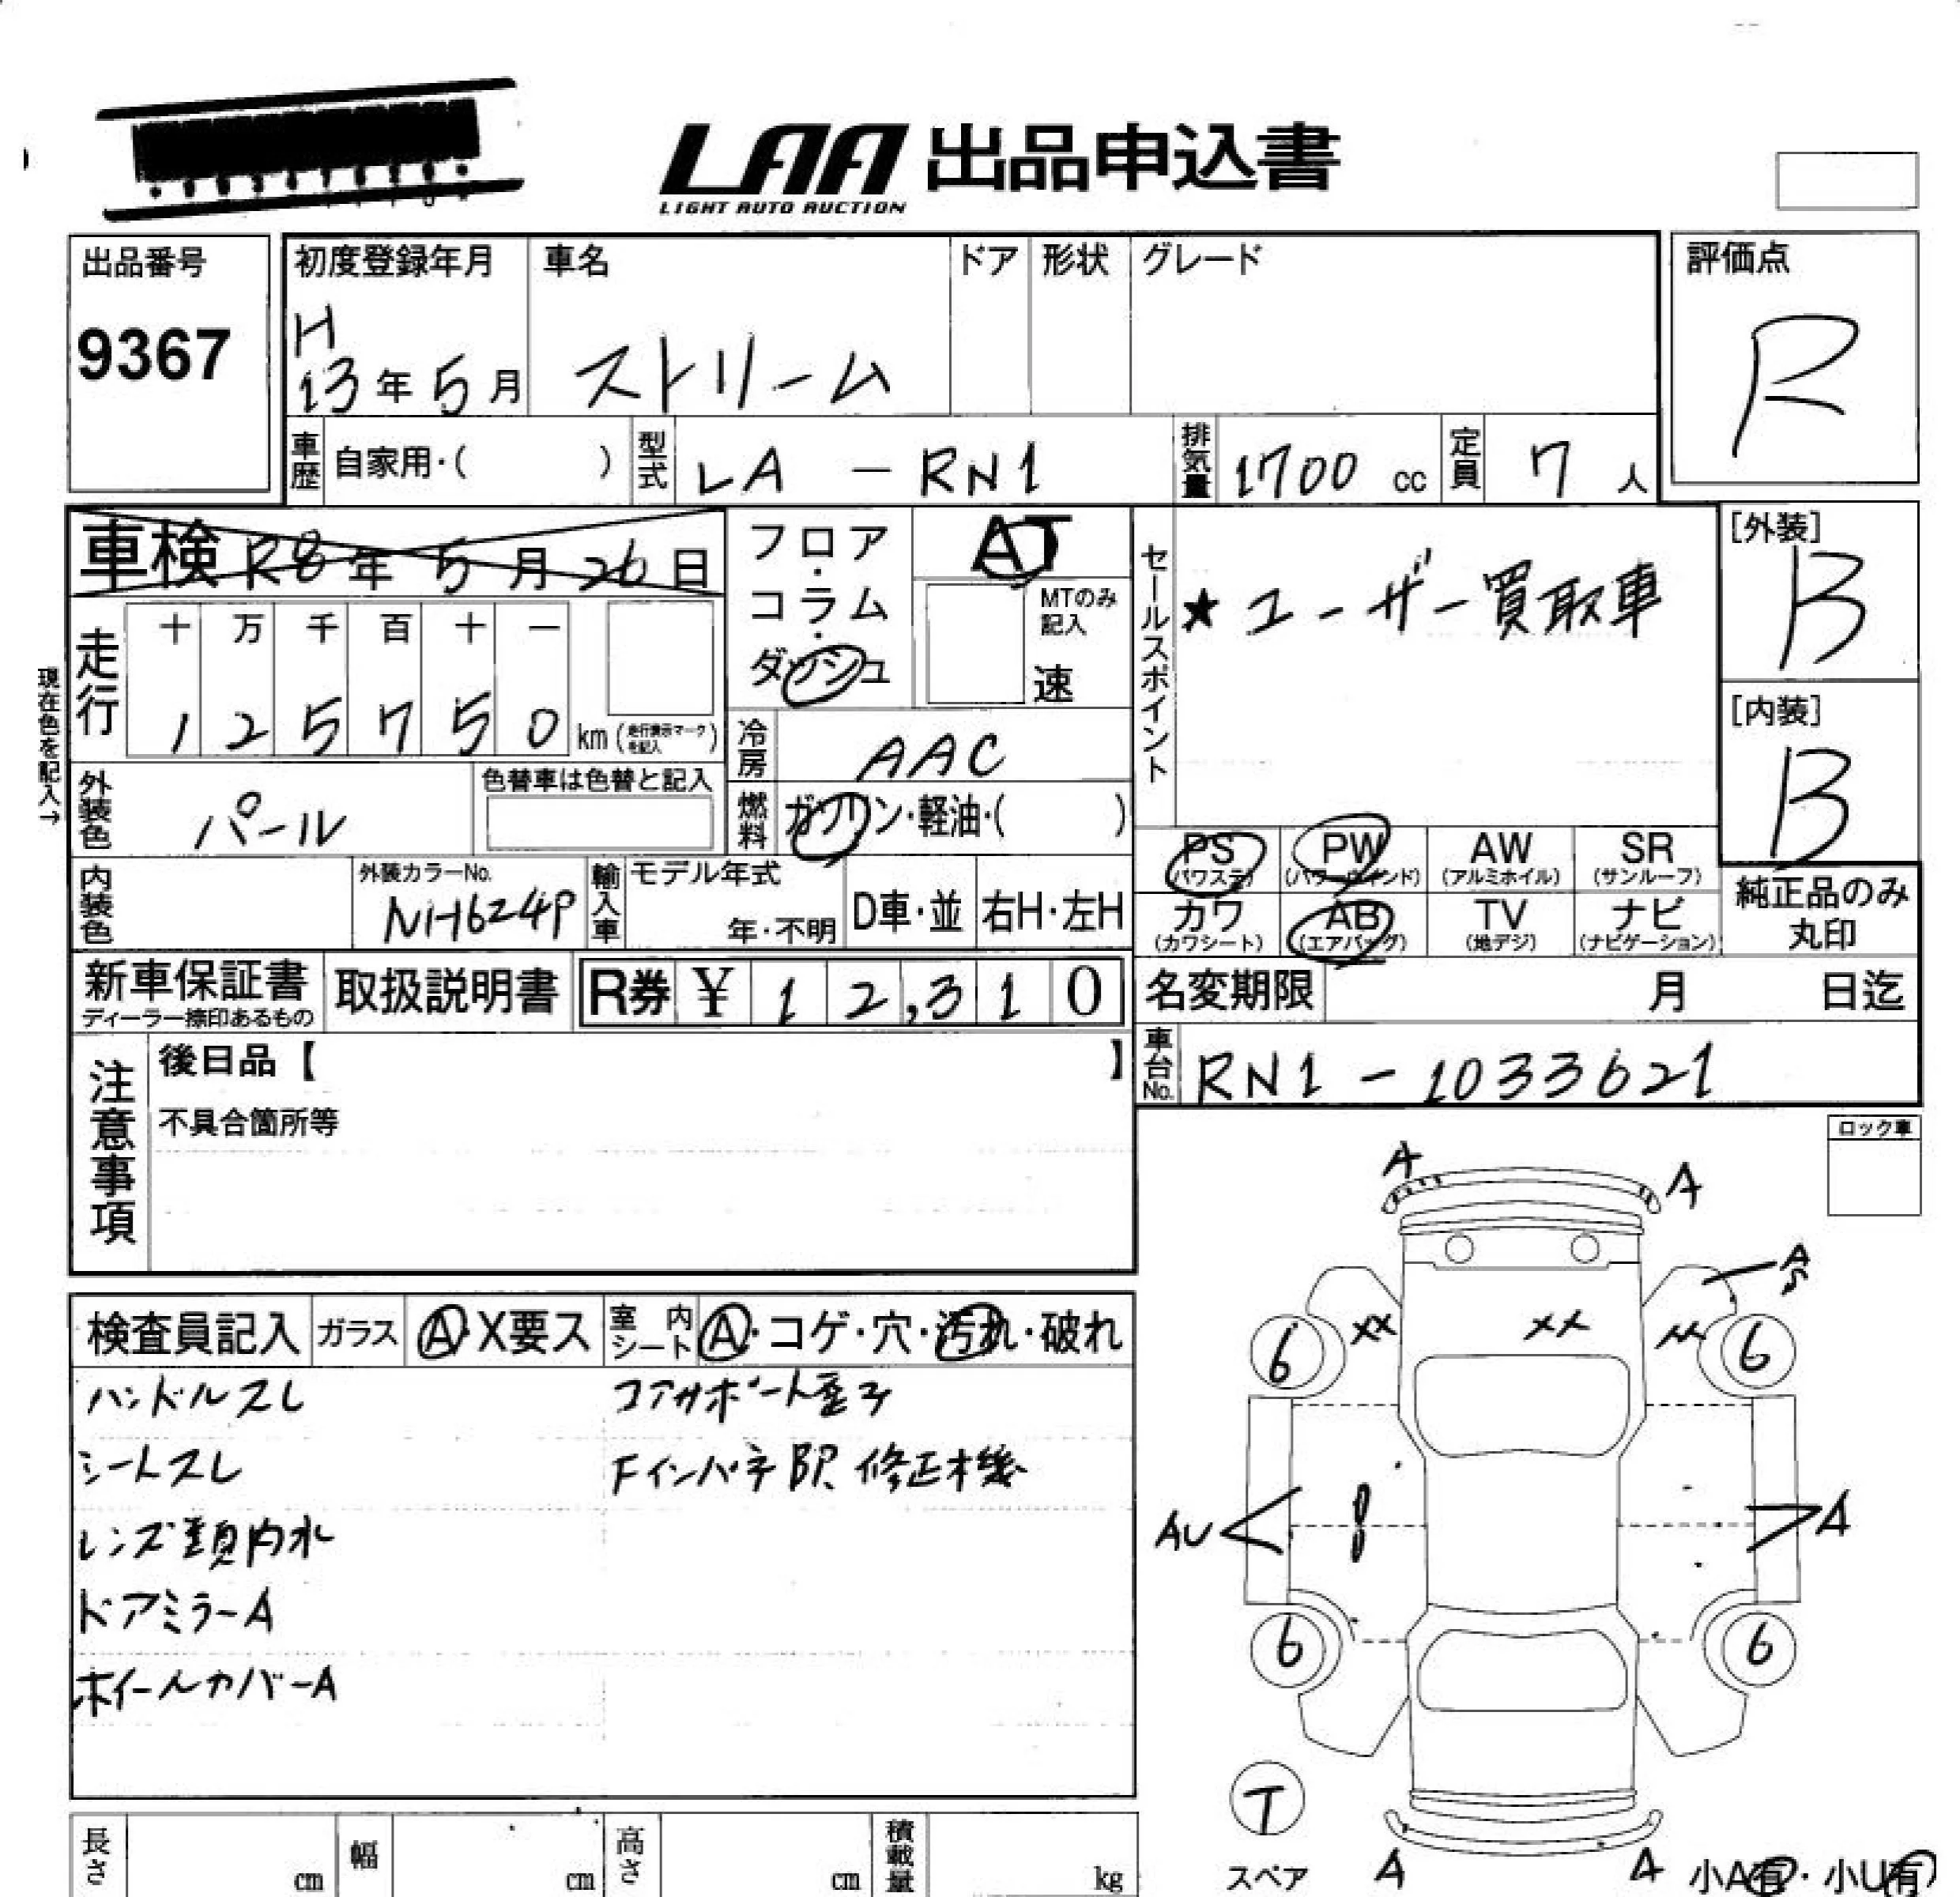 LAA 出品申込書
LIGHT AUTO AUCTION
出品番号
9367
初度登録年月
H
13年5月
車名
ストリーム
ドア
形状
グレード
評価点
R
車歴
自家用・( )
型式
LA - RN1
排気量
1700 cc
定員
7 人
車検 R8年 5月 26日
フロア・コラム・ダッシュ
AT
MTのみ記入
速
セールスポイント
★ユーザー買取車
[外装]
B
[内装]
B
現在色を記入→
走行
十 万 千 百 十 一
1 2 5 7 5 0 km (走行表示マークを記入)
冷房
AAC
外装色
パール
色替車は色替と記入
燃料
ガソリン・軽油・( )
PS (パワステ)
PW (パワーウインド)
AW (アルミホイル)
SR (サンルーフ)
カワ (カワシート)
AB (エアバッグ)
TV (地デジ)
ナビ (ナビゲーション)
純正品のみ丸印
内装色
外装カラーNo.
NH624P
輸入車
モデル年式
年・不明
D車・並
右H・左H
新車保証書
ディーラー捺印あるもの
取扱説明書
R券 ¥ 1 2,3 1 0
名変期限
月 日迄
車台No.
RN1 - 1033621
注意事項
後日品【 】
不具合箇所等
ロック車
検査員記入
ガラス
A・X要ス
室内シート
A・コゲ・穴・汚れ・破れ
ハンドルスレ
コアサポート歪ヌ
シートスレ
Fインパネ部 修正機
レンズ類内水
ドアミラーA
ホイールカバーA
A
A
A
S
XX
XX
6
6
AU
A
6
6
T
スペア
A
A
小A有・小U有
長さ
cm
幅
cm
高さ
cm
積載量
kg